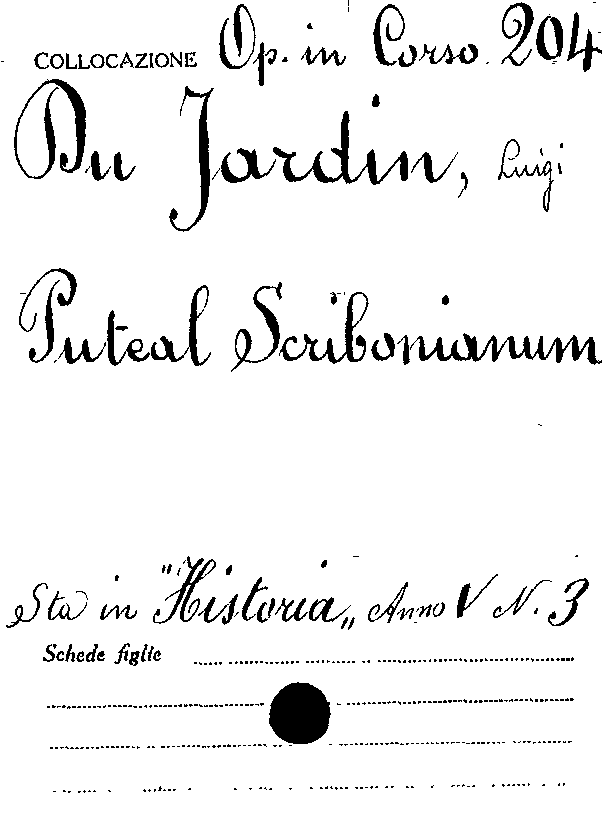 COLLOCAZIONE Op. in Corso 204
Du Jardin, Luigi
Puteal Scribonianum
Sta in "Historia„ Anno V N. 3
Schede figlie